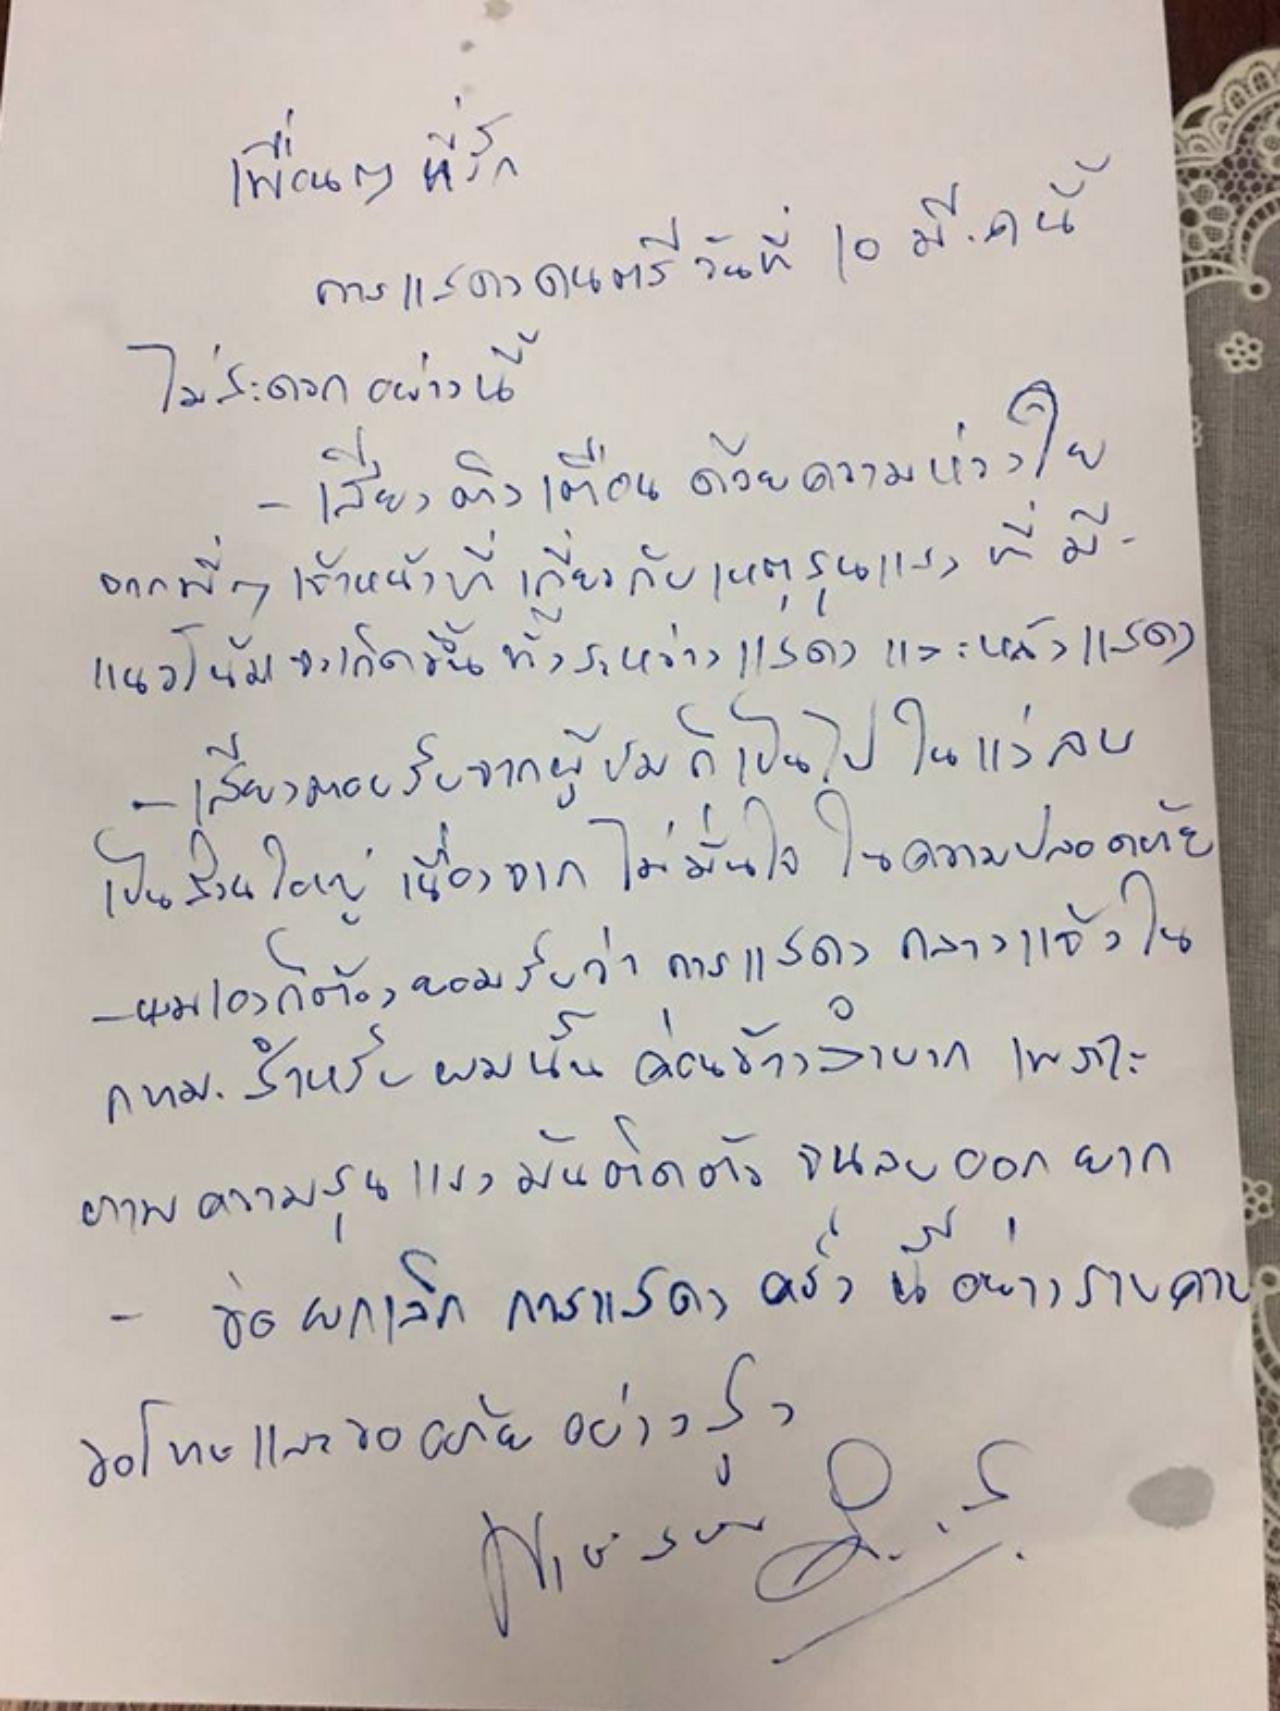 เพื่อนๆ ที่รัก
การแสดงดนตรีวันที่ 10 มี.ค นี้
ไม่สะดวกอย่างนี้
- เสียงติงเตือน ด้วยความห่วงใย
จากพี่ๆ เจ้าหน้าที่ เกี่ยวกับเหตุรุนแรง ที่มี-
แนวโน้มจะเกิดขึ้น ทั้งระหว่างแสดง และหลังแสดง
- เสียงตอบรับจากผู้ชมก็เป็นไป ในแง่ลบ
เป็นส่วนใหญ่ เนื่องจาก ไม่มั่นใจ ในความปลอดภัย
- ผมเองก็ต้องยอมรับว่า การแสดง กลางแจ้งใน
กทม. สำหรับ ผมนั้น ค่อนข้างลำบาก เพราะ
ภาพความรุนแรง มันติดตัว จนลบออกยาก
- ขอยกเลิก การแสดง ครั้งนี้ อย่างราบคาบ
ขอโทษและขออภัย อย่างสูง